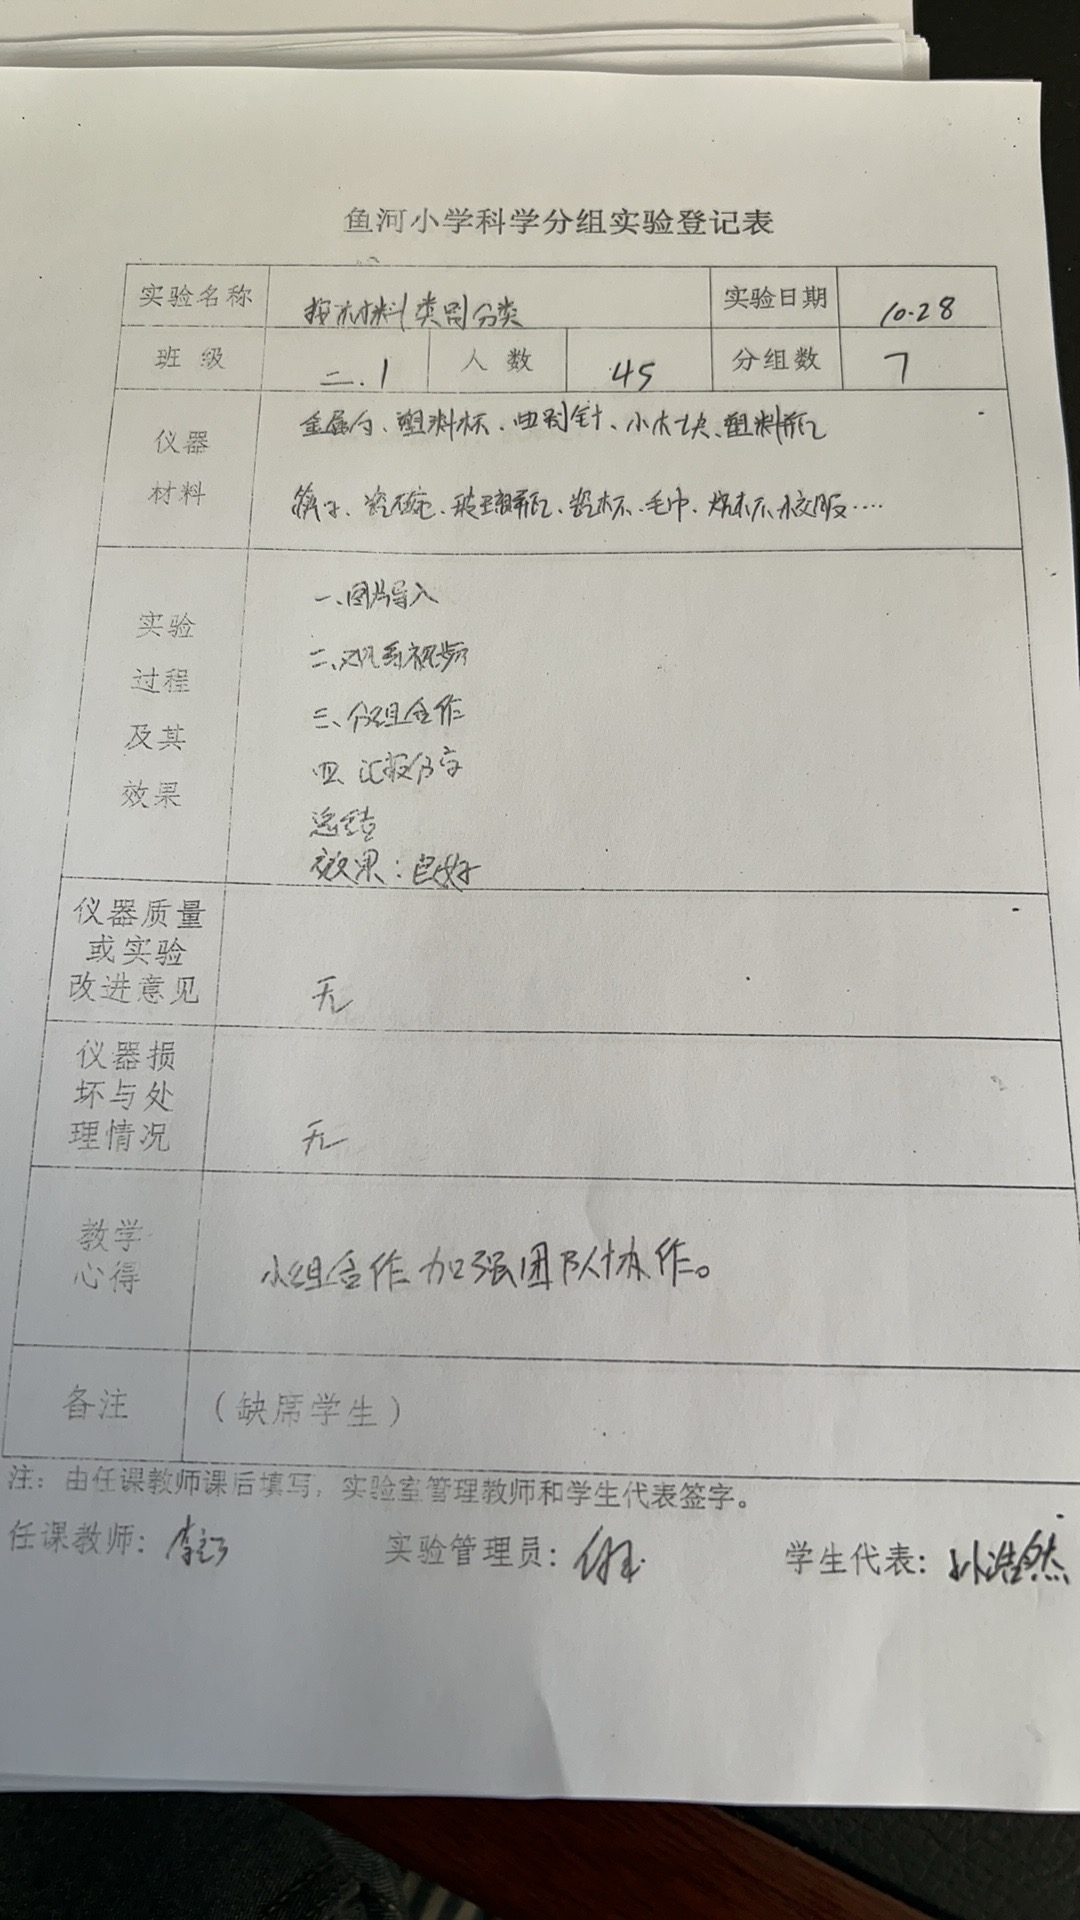 鱼河小学科学分组实验登记表
实验名称 按材料类别分类 实验日期 10.28
班级 二.1 人数 45 分组数 7
仪器 金属勺、塑料杯、曲别针、小木块、塑料瓶
材料 筷子、瓷碗、玻璃瓶、瓷杯、毛巾、纸杯、校服……
实验
过程
及其
效果
一、图片导入
二、观看视频
三、分组合作
四、汇报分享
总结
效果：良好
仪器质量
或实验
改进意见
无
仪器损
坏与处
理情况
无
教学
心得
小组合作加强团队协作。
备注 （缺席学生）
注：由任课教师课后填写，实验室管理教师和学生代表签字。
任课教师： 实验管理员： 学生代表：孙浩然